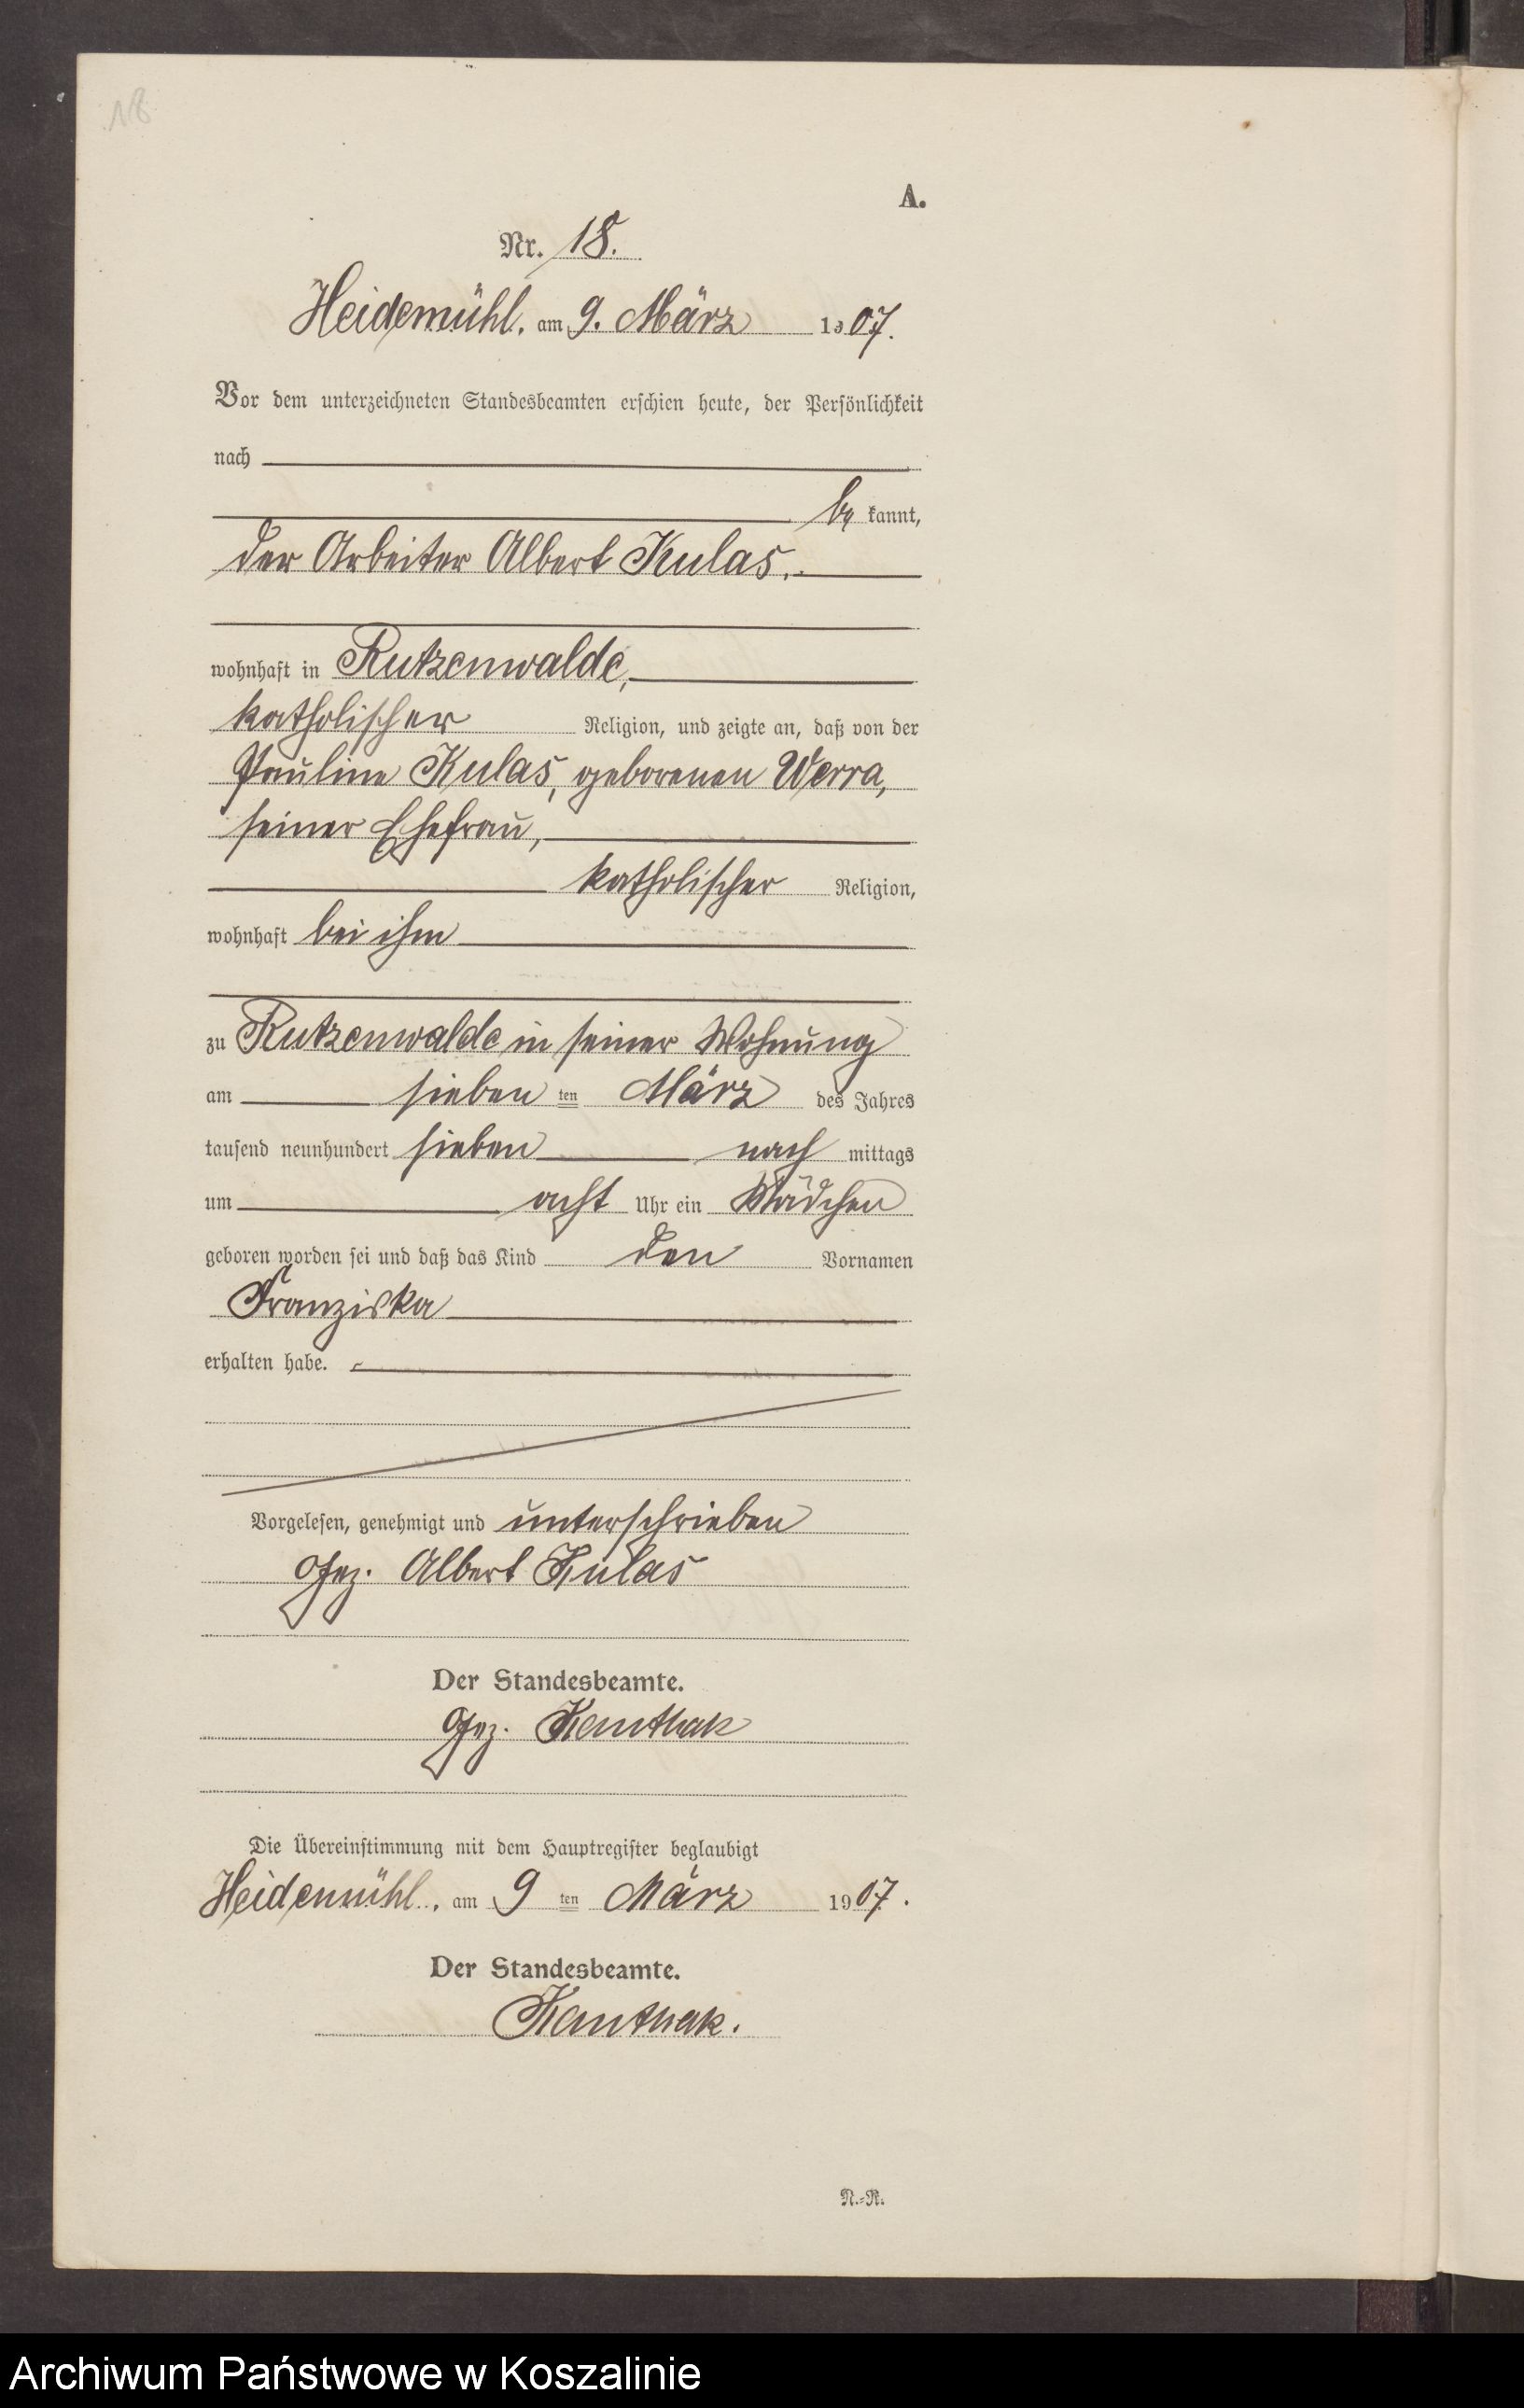 18
A.
Nr. 18.
Heidemühl, am 9. März 1907.
Vor dem unterzeichneten Standesbeamten erschien heute, der Persönlichkeit
nach
be kannt,
der Arbeiter Albert Kulas,
wohnhaft in Rutzenwalde,
katholischer Religion, und zeigte an, daß von der
Pauline Kulas, geborenen Werra,
seiner Ehefrau,
katholischer Religion,
wohnhaft bei ihm
zu Rutzenwalde in seiner Wohnung
am sieben ten März des Jahres
tausend neunhundert sieben nach mittags
um acht Uhr ein Mädchen
geboren worden sei und daß das Kind den Vornamen
Franziska
erhalten habe.
Vorgelesen, genehmigt und unterschrieben
Gez. Albert Kulas
Der Standesbeamte.
Gez. Kanthak
Die Übereinstimmung mit dem Hauptregister beglaubigt
Heidemühl, am 9 ten März 1907.
Der Standesbeamte.
Kanthak.
N.-R.
Archiwum Państwowe w Koszalinie